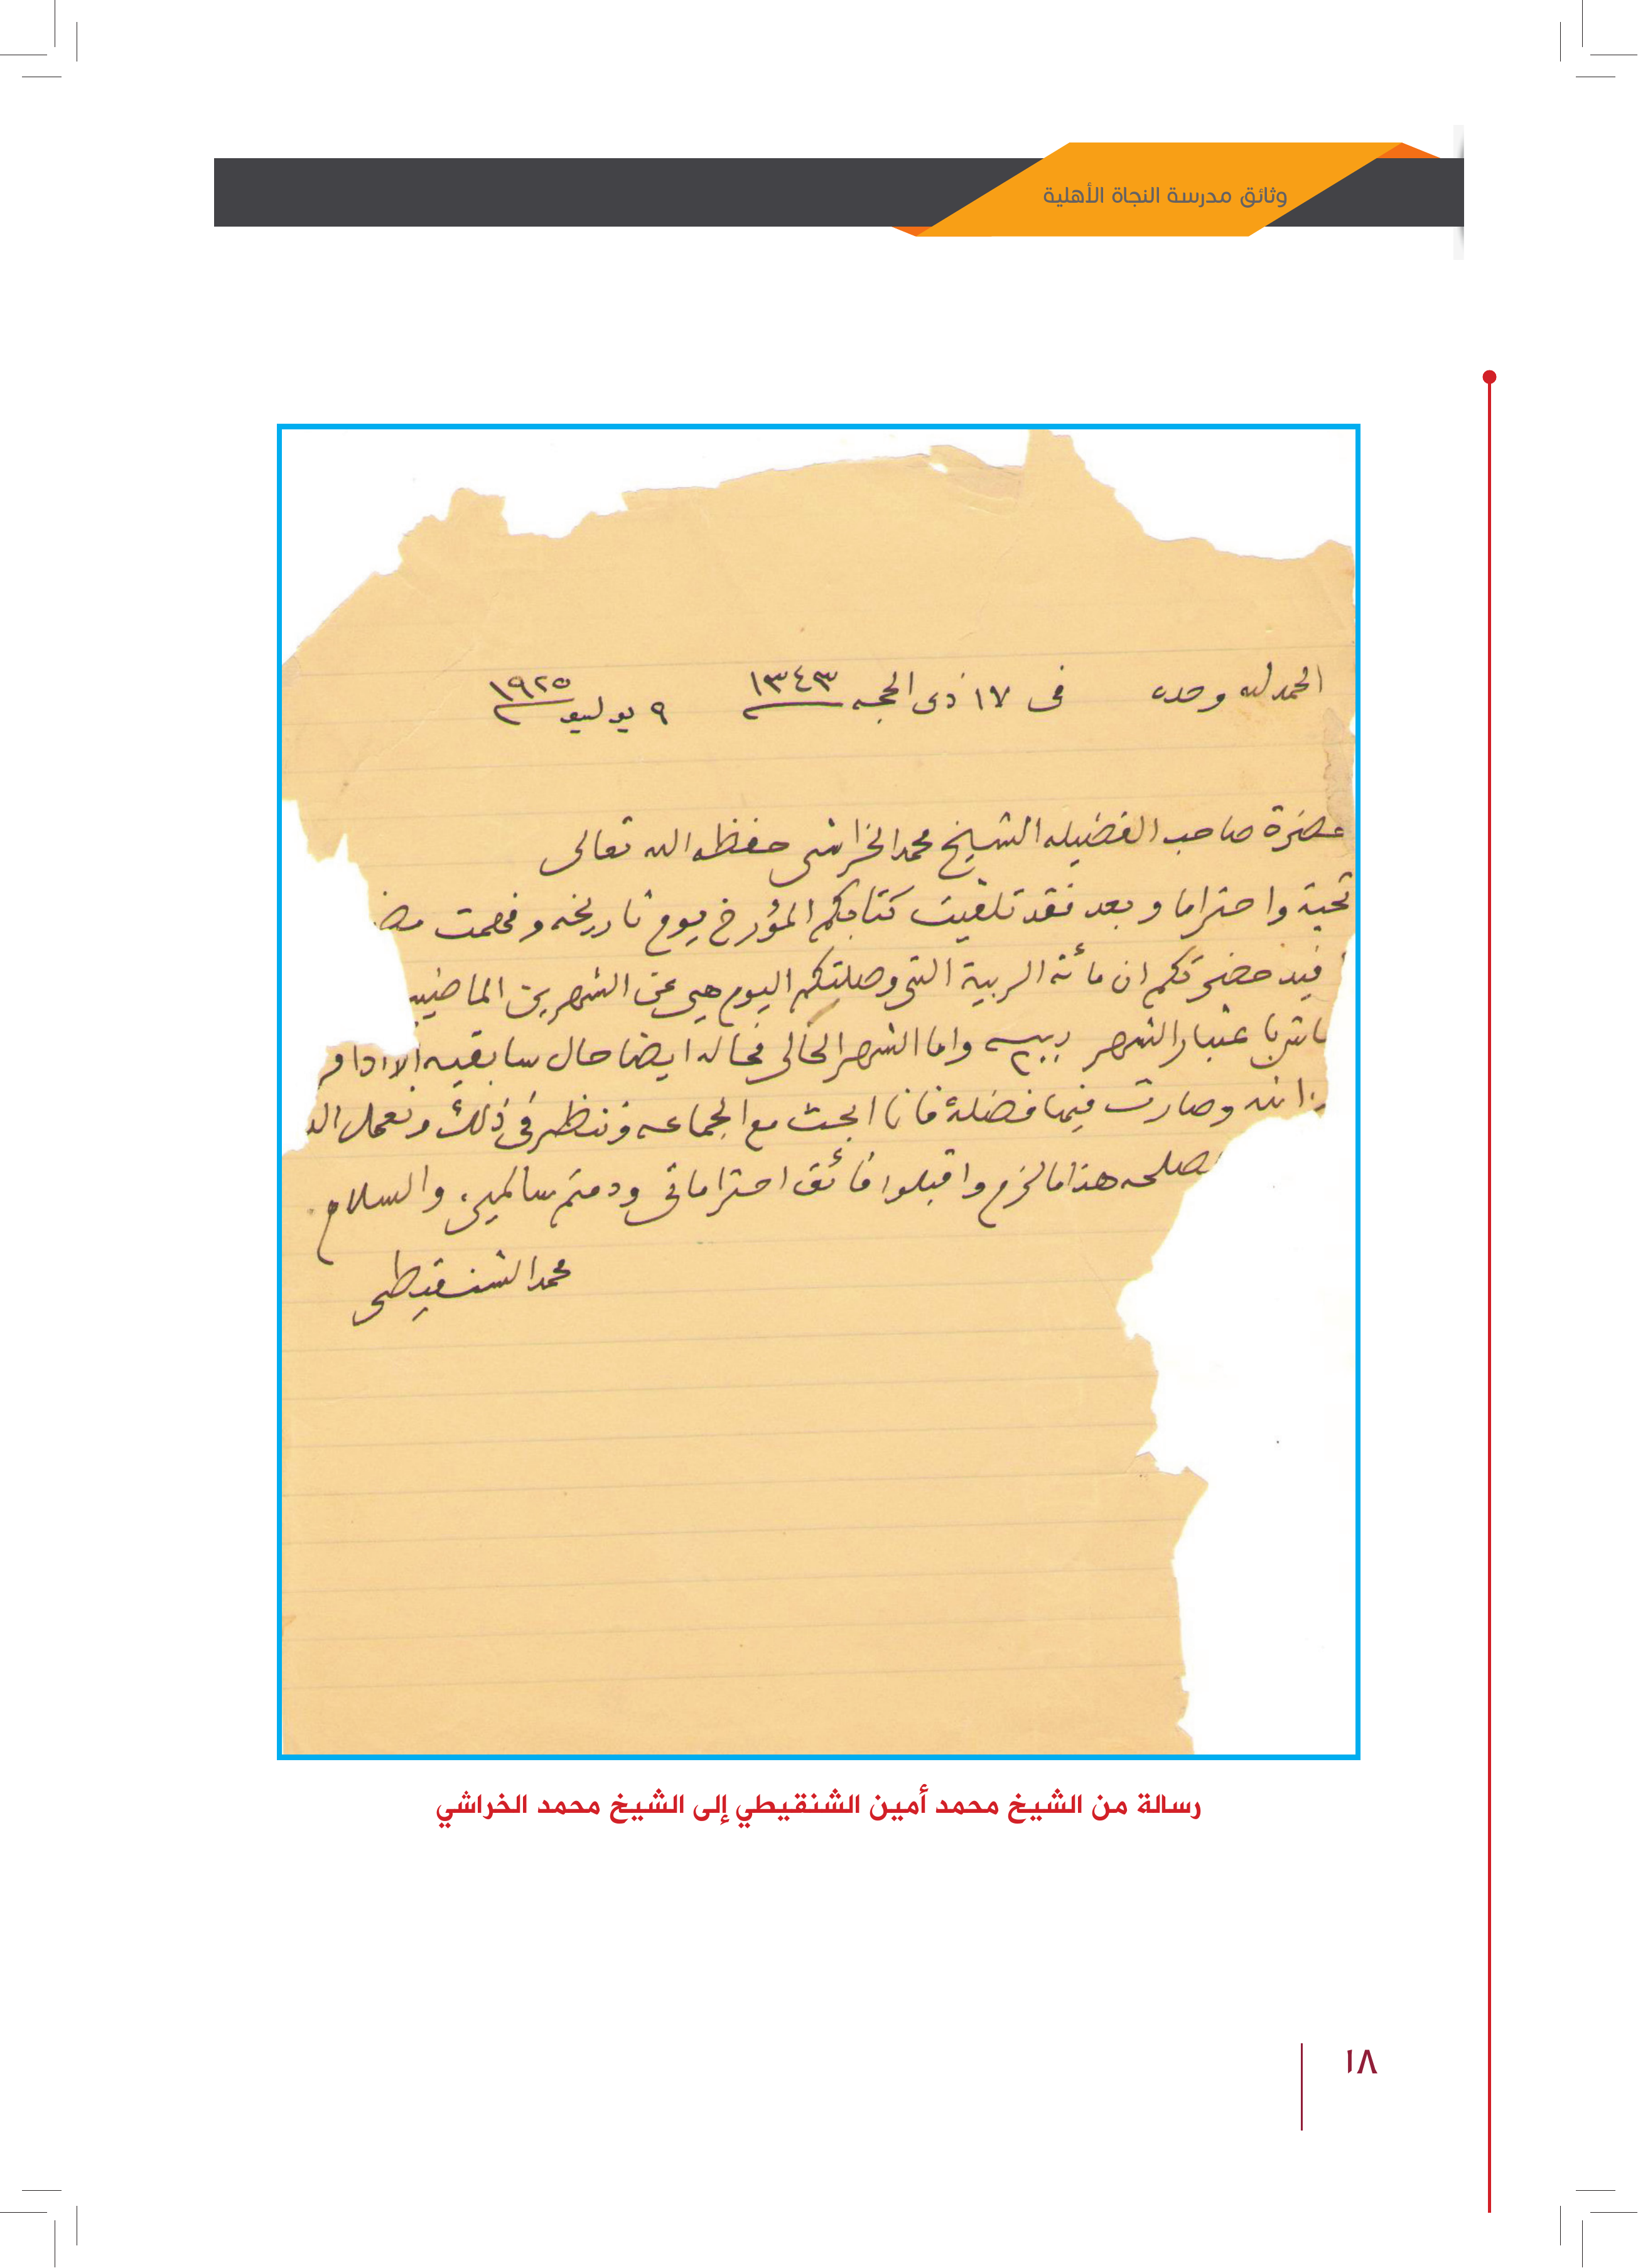 وثائق مدرسة النجاة الأهلية
الحمد لله وحده في ١٧ ذى الحجه ١٣٤٣ ٩ يوليو ١٩٢٥
حضرة صاحب الفضيله الشيخ محمد الخراشى حفظه الله تعالى
تحية واحتراما وبعد فقد تلقيت كتابكم المؤرخ يوم تاريخه وفهمت
حضرتكم ان مائة الربية التى وصلتكم اليوم هي عن الشهرين الماضيين
باعتبار الشهر واما الشهر الحالى فحاله ايضا حال سابقيه الا اذا
انه وصارت فيها فضلة فانا ابحث مع الجماعه وننظر في ذلك ونعمل
هذا ما لزم واقبلوا فائق احتراماتى ودمتم سالمين والسلام
محمد الشنقيطى
رسالة من الشيخ محمد أمين الشنقيطي إلى الشيخ محمد الخراشي
١٨